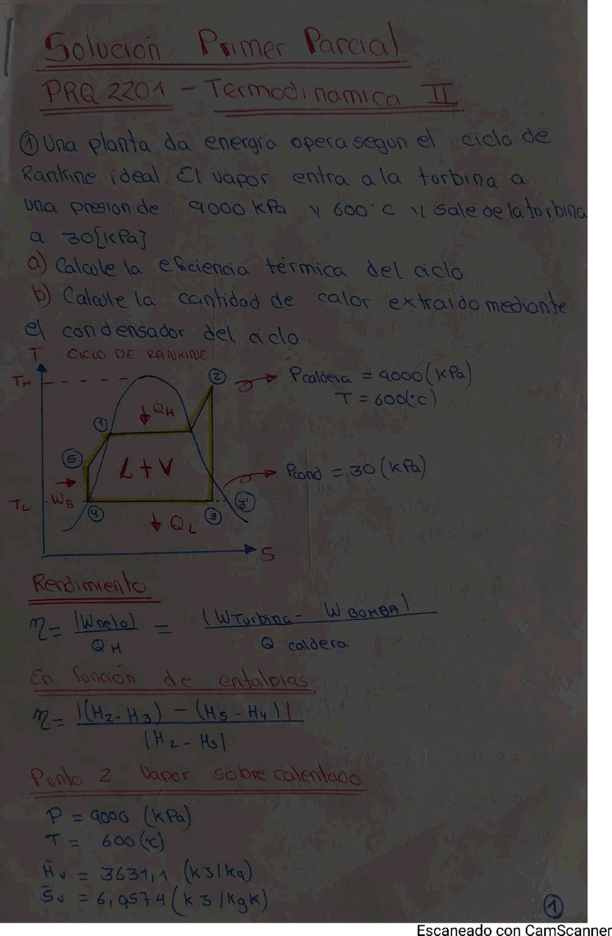 Solución Primer Parcial
PRQ 2201 - Termodinamica II
① Una planta da energía opera segun el ciclo de
Rankine ideal. El vapor entra a la torbina a
una presion de 9000 kPa y 600°C y sale de la turbina
a 30[kPa]
a) Calcule la eficiencia térmica del ciclo
b) Calcule la cantidad de calor extraido mediante
el condensador del ciclo.
T CICLO DE RANKINE
TH
②
Pcaldera = 9000 (kPa)
T = 600(°C)
QH
①
⑤
L + V
Pcond = 30 (kPa)
TL
Ws
④
QL
③
③'
S
Rendimiento
η = |Wneto| / QH = (WTurbina - WBOMBA) / Q caldera
En función de entalpias
η = |(H2 - H3) - (H5 - H4)| / |H2 - H5|
Punto 2 Vapor sobrecalentado
P = 9000 (kPa)
T = 600 (°C)
Hv = 3631,1 (kJ/kg)
Sv = 6,9574 (kJ/kgK)
①
Escaneado con CamScanner